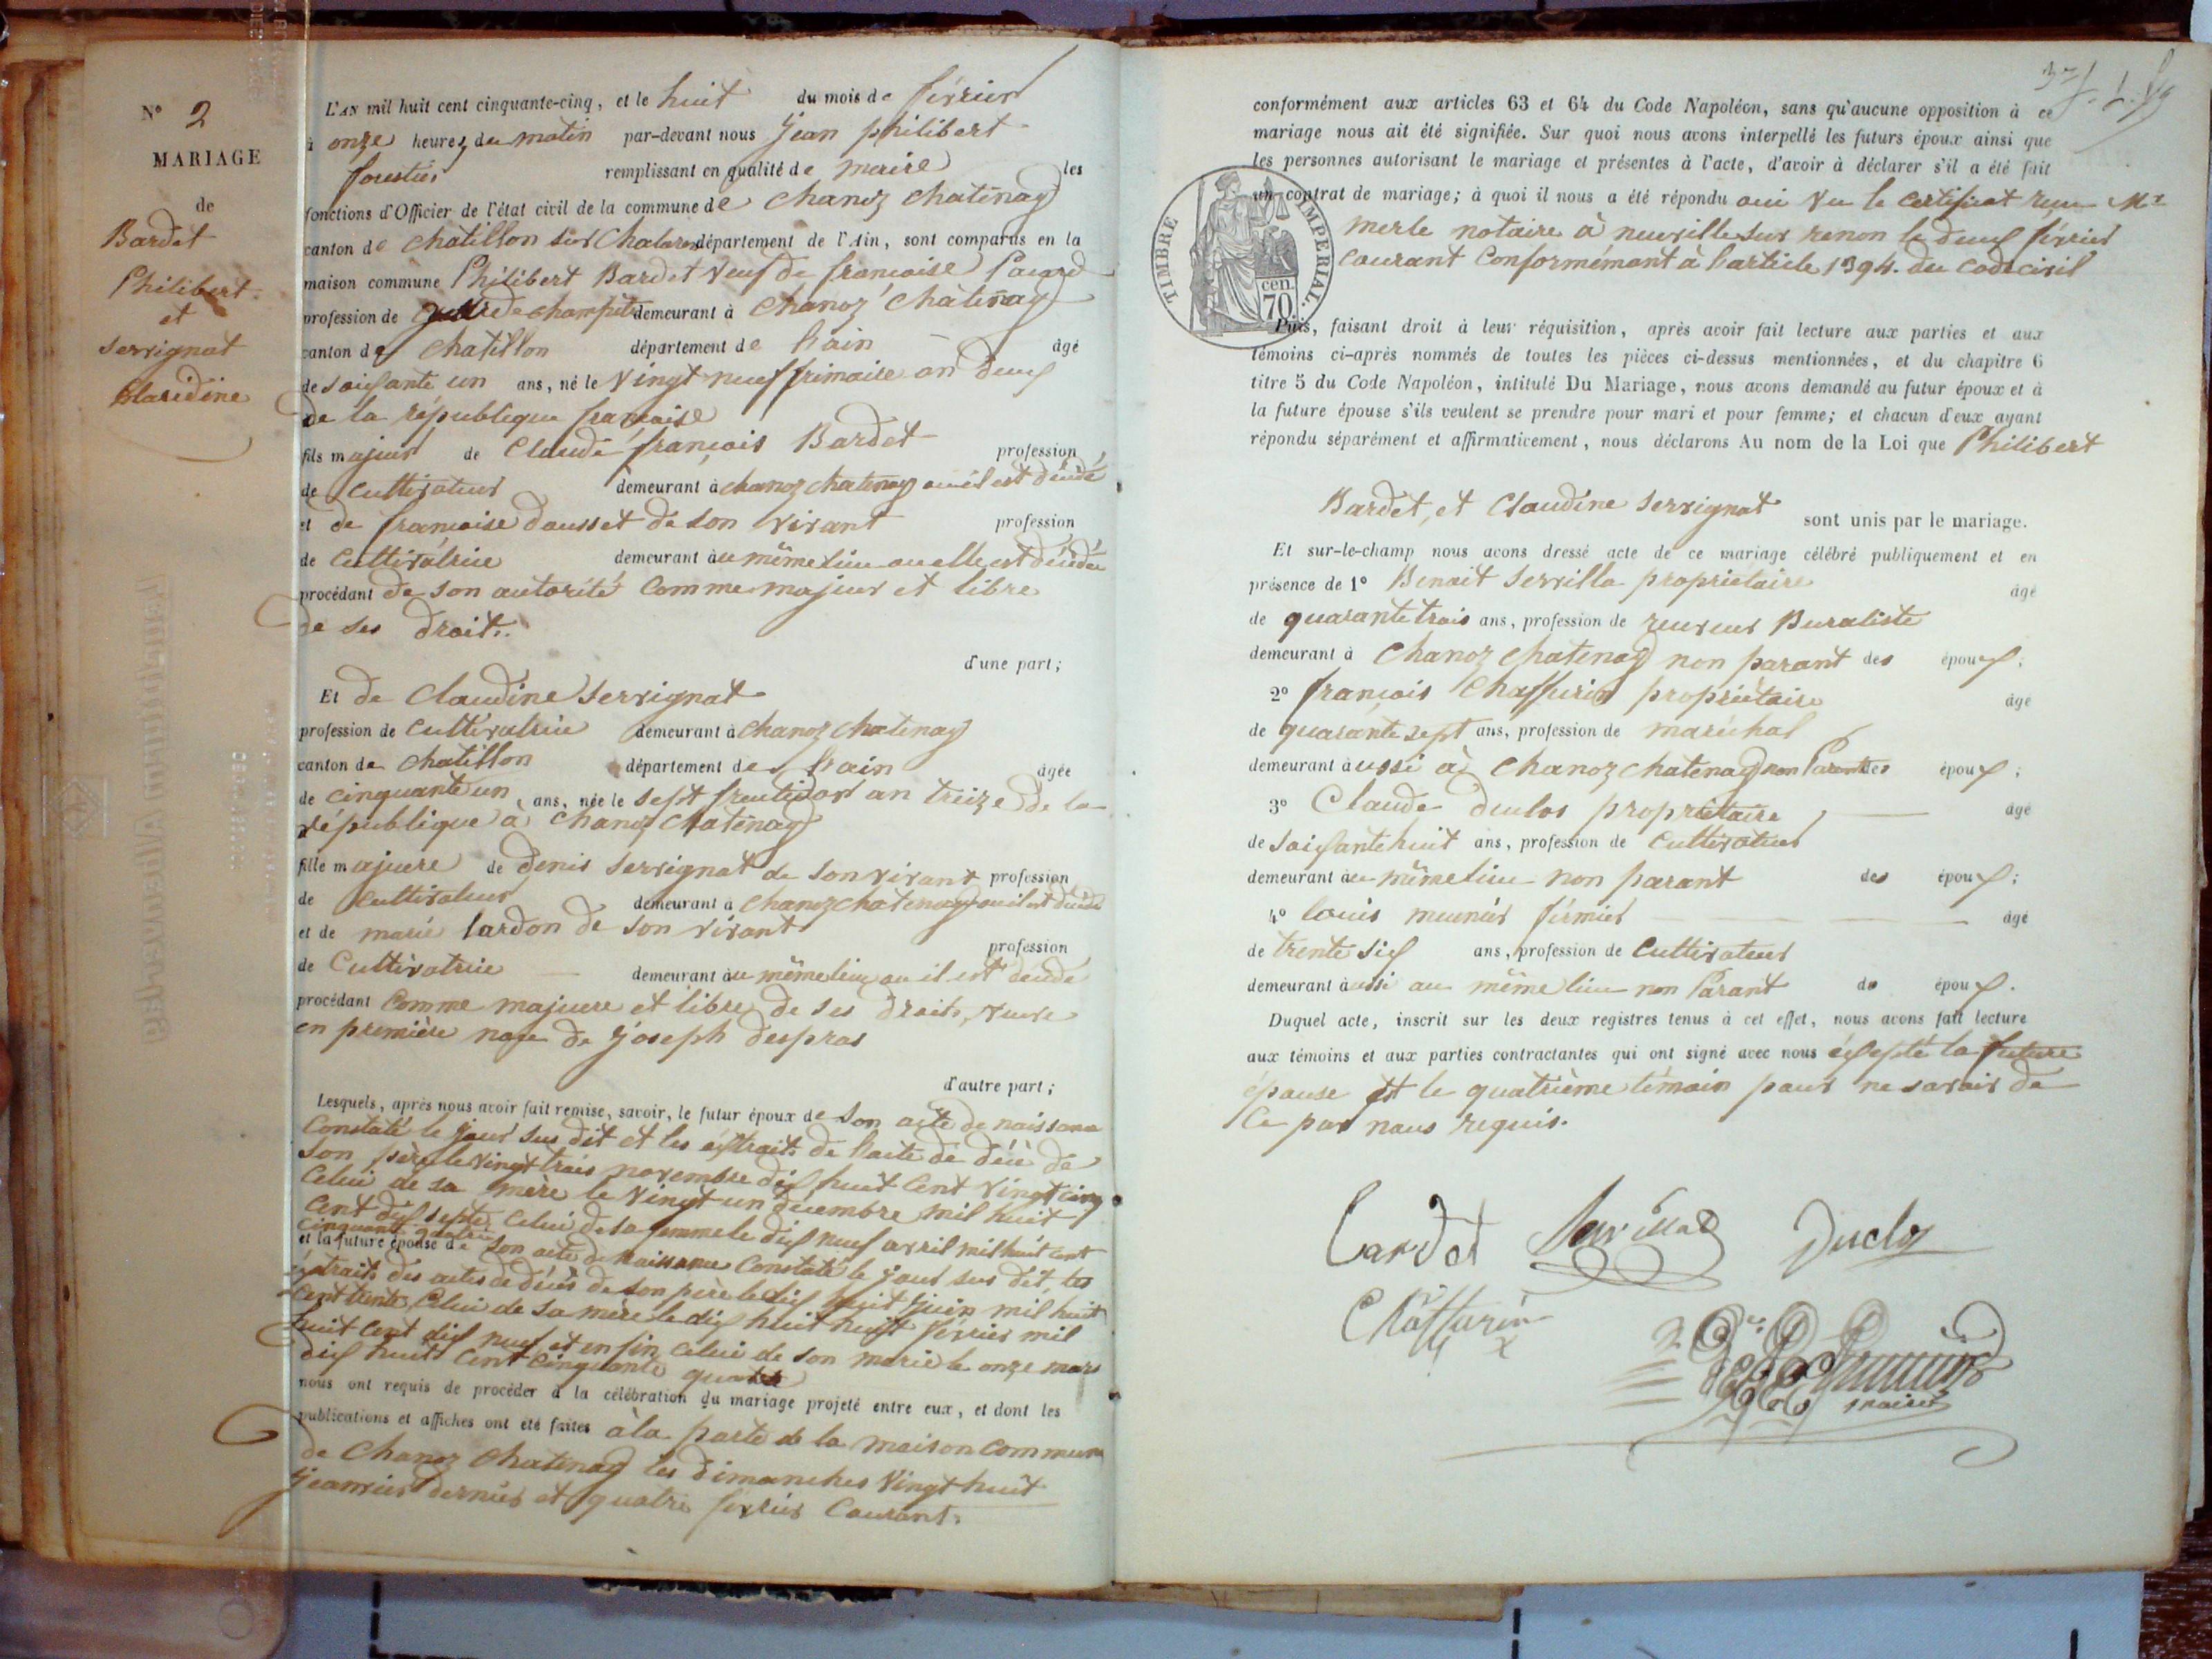 N° 2
MARIAGE
de
Bardet
Philibert
et
Servignat
Claudine
L'AN mil huit cent cinquante-cinq, et le huit du mois de février
à onze heures du matin par-devant nous Jean philibert
forestier remplissant en qualité de maire les
fonctions d'Officier de l'état civil de la commune de Chanoz Chatenay
canton de Chatillon sur Chalaronne département de l'Ain, sont comparus en la
maison commune Philibert Bardet veuf de françoise
profession de garde champetre demeurant à Chanoz Châtenay
canton de Chatillon département de l'ain âgé
de soixante un ans, né le vingt neuf frimaire an deux
de la république française
fils majeur de Claude françois Bardet profession
de Cultivateur demeurant à chanoz chatenay ou il est décédé
et de françoise dousset de son vivant profession
de Cultivatrice demeurant au même lieu ou elle est décédée
procédant de son autorité Comme majeur et libre
de ses droits.
d'une part;
Et de Claudine Servignat
profession de Cultivatrice demeurant à Chanoz Chatenay
canton de Chatillon département de l'ain âgée
de cinquante un ans, née le sept fructidor an treize de la
république à Chanoz Chatenay
fille majeure de denis Servignat de son vivant profession
de Cultivateur demeurant à Chanoz chatenay ou il est décédé
et de marie lardon de son vivant profession
de Cultivatrice demeurant au même lieu ou il est décédé
procédant Comme majeure et libre de ses droits, veuve
en première noce de Joseph despras
d'autre part;
Lesquels, après nous avoir fait remise, savoir, le futur époux de son acte de naissance
Constaté le jour sus dit et les extraits de l'acte de décè de
son père le vingt trois novembre dix huit Cent vingt cinq
Celui de sa mère le vingt un décembre mil huit
Cent dix sept, Celui de sa femme le dix neuf avril mil huit cent
cinquante quatre
et la future épouse de son acte de Naissance Constaté le jour sus dit, les
extraits des actes de décès de son père le dix huit juin mil huit
Cent trente, Celui de sa mère le dix huit huit février mil
huit Cent dix neuf et en fin celui de son marie le onze mars
dix huit Cent Cinquante quatre
nous ont requis de procéder à la célébration du mariage projeté entre eux, et dont les
publications et affiches ont été faites à la porte de la maison Commune
de Chanoz Chatenay les dimanches vingt huit
Jeanvier dernier et quatre février Courant.
conformément aux articles 63 et 64 du Code Napoléon, sans qu'aucune opposition à ce
mariage nous ait été signifiée. Sur quoi nous avons interpellé les futurs époux ainsi que
les personnes autorisant le mariage et présentes à l'acte, d'avoir à déclarer s'il a été fait
un contrat de mariage; à quoi il nous a été répondu oui Vu le Certificat reçu Mr
merle notaire à neuville sur renon le deux février
Courant Conformément à l'article 1394. du Code civil
TIMBRE IMPERIAL.
70 cen.
Puis, faisant droit à leur réquisition, après avoir fait lecture aux parties et aux
témoins ci-après nommés de toutes les pièces ci-dessus mentionnées, et du chapitre 6
titre 5 du Code Napoléon, intitulé Du Mariage, nous avons demandé au futur époux et à
la future épouse s'ils veulent se prendre pour mari et pour femme; et chacun d'eux ayant
répondu séparément et affirmativement, nous déclarons Au nom de la Loi que Philibert
Bardet, et Claudine Servignat sont unis par le mariage.
Et sur-le-champ nous avons dressé acte de ce mariage célébré publiquement et en
présence de 1° Benoit Servilla propriétaire âgé
de quarante trois ans, profession de receveur Buraliste
demeurant à Chanoz Chatenay non parant des époux;
2° françois Chaffurin propriétaire âgé
de quarante sept ans, profession de maréchal
demeurant aussi à Chanoz Chatenay non Parent des époux;
3° Claude duclos propriétaire âgé
de soixante huit ans, profession de Cultivateur
demeurant au même lieu non parant des époux;
4° louis meunier fermier âgé
de trente six ans, profession de Cultivateur
demeurant aussi au même lieu non Parant de époux.
Duquel acte, inscrit sur les deux registres tenus à cet effet, nous avons fait lecture
aux témoins et aux parties contractantes qui ont signé avec nous éxepté la future
épouse et le quatrième témoin pour ne savoir de
Ce par nous requis.
Bardet Servillat Duclos
Chaffurin
maire